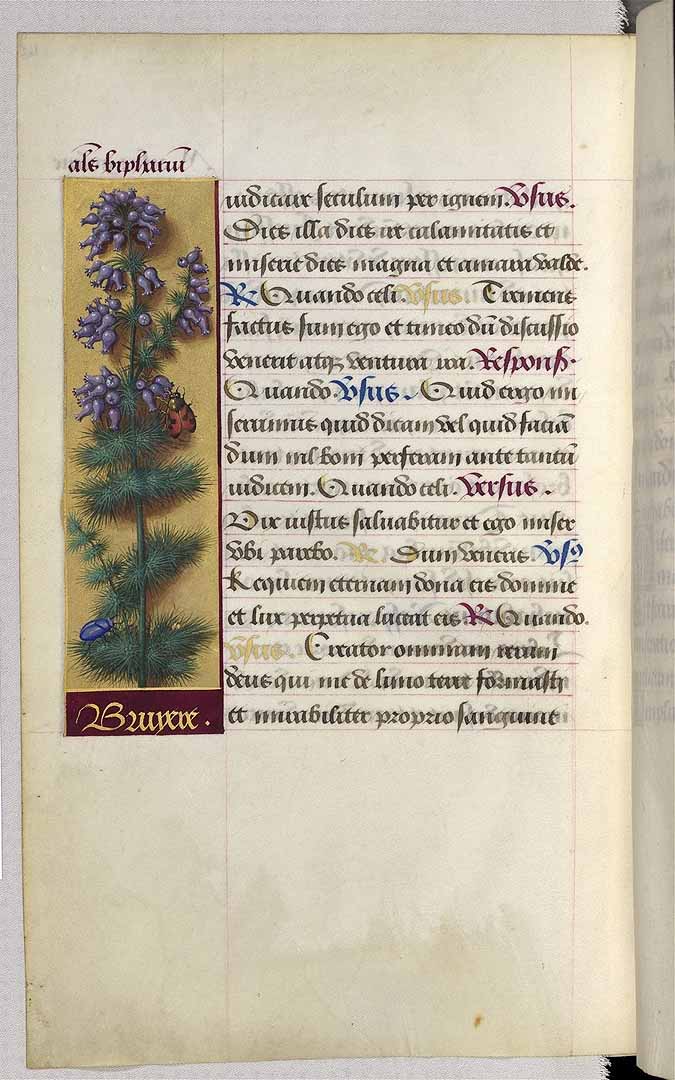 als bipharum
iudicare seculum per ignem. Vsus.
Dies illa dies ire calamitatis et
miserie dies magna et amara valde.
R Quando celi. Vsus. Tremens
factus sum ego et timeo dũ discussio
venerit atqȝ ventura ira. Respons.
Quando. Vsus. Quid ergo mi
serrimus quid dicam vel quid faciã
dum nil boni perferam ante tantũ
iudicem. Quando celi. Versus.
Vix iustus saluabitur et ego miser
vbi parebo. R Dum veneris. Vs9
Requiem eternam dona eis domine
et lux perpetua luceat eis R Quando.
Vsus. Creator omnium rerum
deus qui me de limo terre formasti
et mirabiliter proprio sanguine
Bruyere.